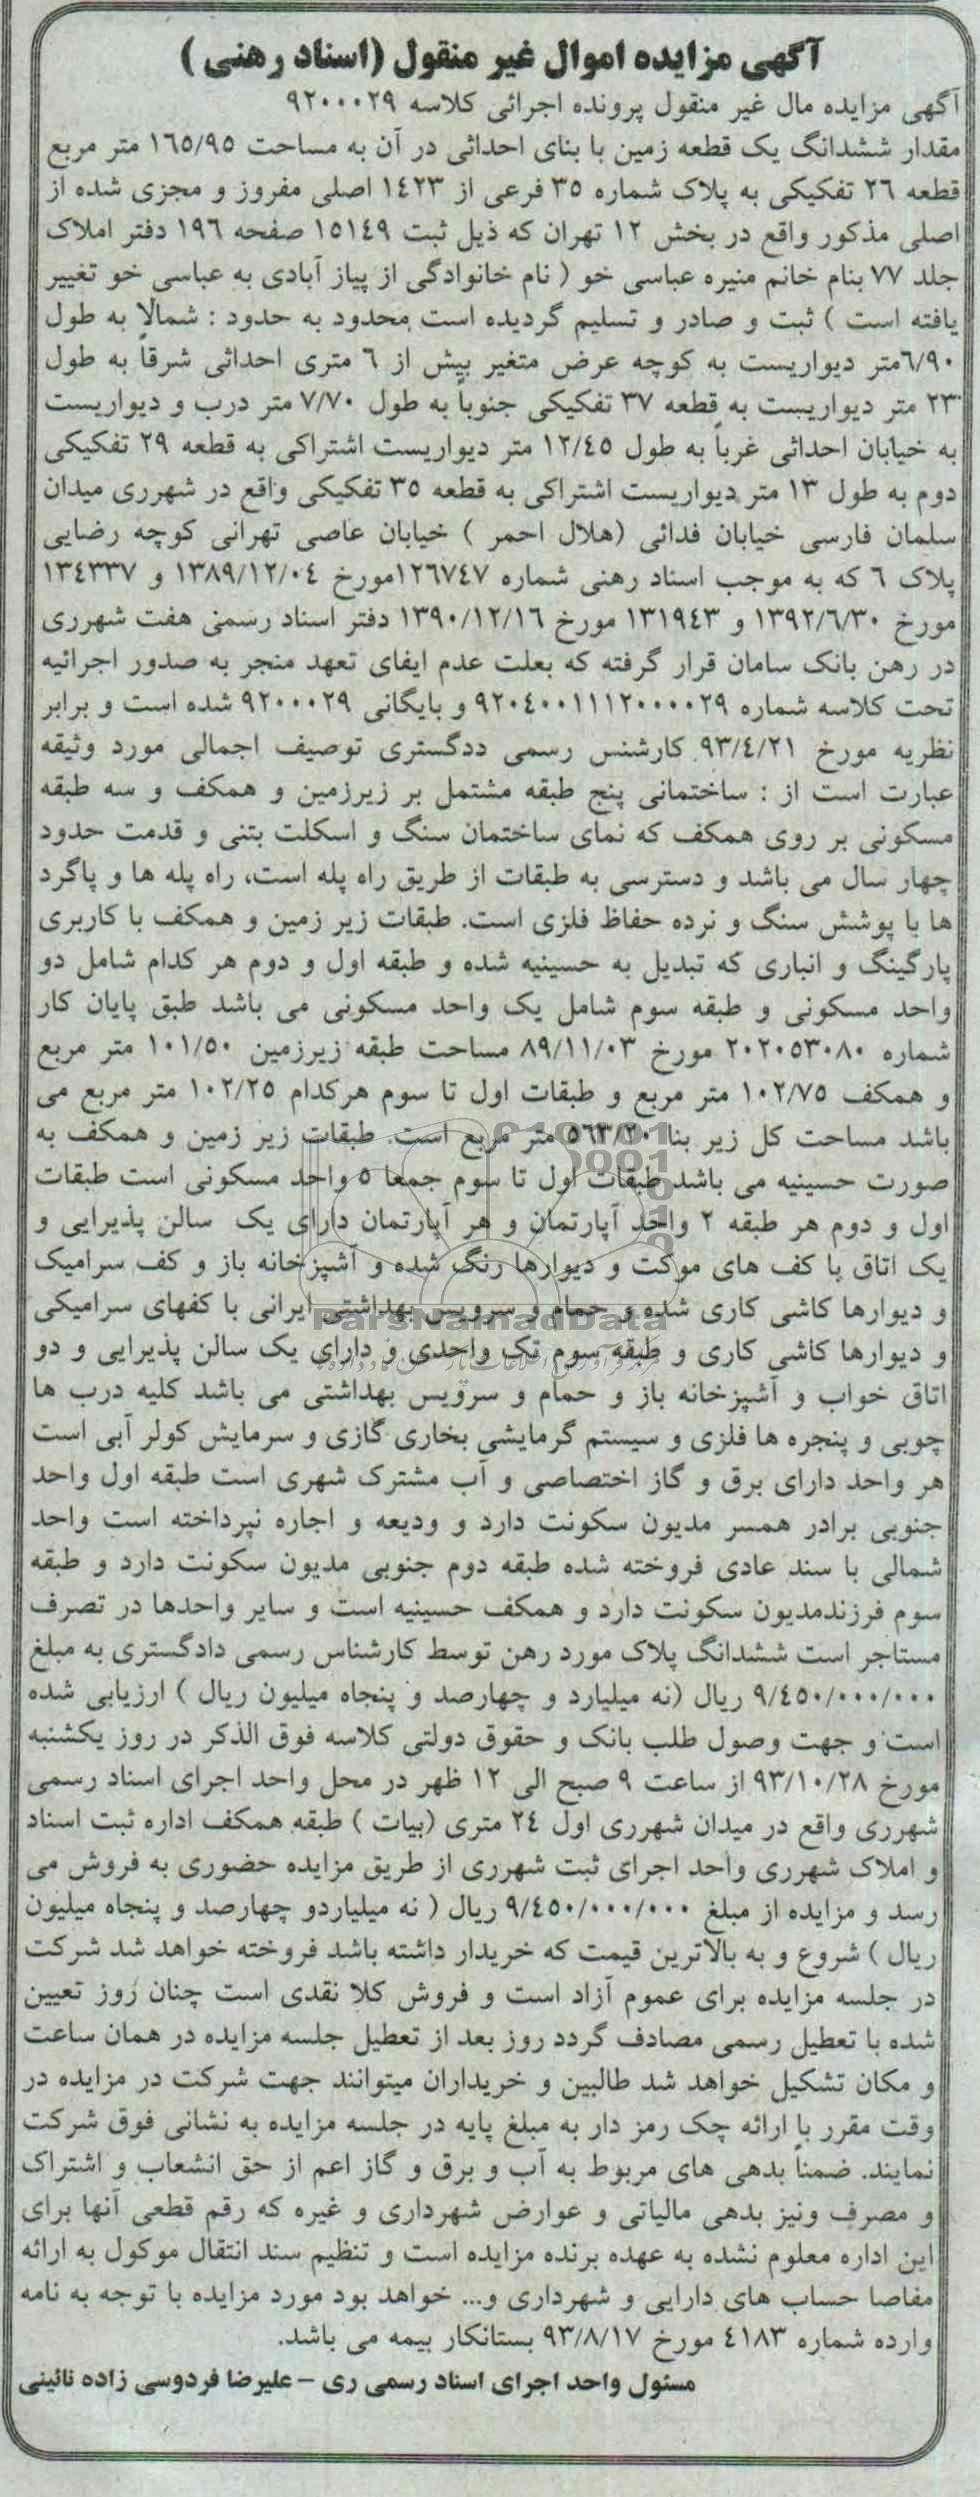 آگهی مزایده اموال غیر منقول (اسناد رهنی )
آگهی مزایده مال غیر منقول پرونده اجرائی کلاسه ۹۲۰۰۰۲۹
مقدار ششدانگ یک قطعه زمین با بنای احداثی در آن به مساحت ۱۶۵/۹۵ متر مربع
قطعه ۲۶ تفکیکی به پلاک شماره ۳۵ فرعی از ۱۴۲۳ اصلی مفروز و مجزی شده از
اصلی مذکور واقع در بخش ۱۲ تهران که ذیل ثبت ۱۵۱۴۹ صفحه ۱۹۶ دفتر املاک
جلد ۷۷ بنام خانم منیره عباسی خو ( نام خانوادگی از پیاز آبادی به عباسی خو تغییر
یافته است ) ثبت و صادر و تسلیم گردیده است محدود به حدود : شمالا به طول
۶/۹۰متر دیواریست به کوچه عرض متغیر بیش از ۶ متری احداثی شرقاً به طول
۲۳ متر دیواریست به قطعه ۳۷ تفکیکی جنوباً به طول ۷/۷۰ متر درب و دیواریست
به خیابان احداثی غرباً به طول ۱۲/۴۵ متر دیواریست اشتراکی به قطعه ۲۹ تفکیکی
دوم به طول ۱۳ متر دیواریست اشتراکی به قطعه ۳۵ تفکیکی واقع در شهرری میدان
سلمان فارسی خیابان فدائی (هلال احمر ) خیابان عاصی تهرانی کوچه رضایی
پلاک ۶ که به موجب اسناد رهنی شماره ۱۲۶۷۴۷مورخ ۱۳۸۹/۱۲/۰۴ و ۱۳۴۳۳۷
مورخ ۱۳۹۲/۶/۳۰ و ۱۳۱۹۴۳ مورخ ۱۳۹۰/۱۲/۱۶ دفتر اسناد رسمی هفت شهرری
در رهن بانک سامان قرار گرفته که بعلت عدم ایفای تعهد منجر به صدور اجرائیه
تحت کلاسه شماره ۹۲۰۴۰۰۱۱۱۲۰۰۰۰۲۹ و بایگانی ۹۲۰۰۰۲۹ شده است و برابر
نظریه مورخ ۹۳/۴/۲۱ کارشنس رسمی ددگستری توصیف اجمالی مورد وثیقه
عبارت است از : ساختمانی پنج طبقه مشتمل بر زیرزمین و همکف و سه طبقه
مسکونی بر روی همکف که نمای ساختمان سنگ و اسکلت بتنی و قدمت حدود
چهار سال می باشد و دسترسی به طبقات از طریق راه پله است، راه پله ها و پاگرد
ها با پوشش سنگ و نرده حفاظ فلزی است. طبقات زیر زمین و همکف با کاربری
پارگینگ و انباری که تبدیل به حسینیه شده و طبقه اول و دوم هر کدام شامل دو
واحد مسکونی و طبقه سوم شامل یک واحد مسکونی می باشد طبق پایان کار
شماره ۲۰۲۰۵۳۰۸۰ مورخ ۸۹/۱۱/۰۳ مساحت طبقه زیرزمین ۱۰۱/۵۰ متر مربع
و همکف ۱۰۲/۷۵ متر مربع و طبقات اول تا سوم هرکدام ۱۰۲/۲۵ متر مربع می
باشد مساحت کل زیر بنا ۵۶۳/۲۰ متر مربع است. طبقات زیر زمین و همکف به
صورت حسینیه می باشد طبقات اول تا سوم جمعا ۵ واحد مسکونی است طبقات
اول و دوم هر طبقه ۲ واحد آپارتمان و هر آپارتمان دارای یک سالن پذیرایی و
یک اتاق با کف های موکت و دیوارها رنگ شده و آشپزخانه باز و کف سرامیک
و دیوارها کاشی کاری شده و حمام و سرویس بهداشتی ایرانی با کفهای سرامیکی
ParsNamadData
و دیوارها کاشی کاری و طبقه سوم تک واحدی و دارای یک سالن پذیرایی و دو
اتاق خواب و آشپزخانه باز و حمام و سرویس بهداشتی می باشد کلیه درب ها
چوبی و پنجره ها فلزی و سیستم گرمایشی بخاری گازی و سرمایش کولر آبی است
هر واحد دارای برق و گاز اختصاصی و آب مشترک شهری است طبقه اول واحد
جنوبی برادر همسر مدیون سکونت دارد و ودیعه و اجاره نپرداخته است واحد
شمالی با سند عادی فروخته شده طبقه دوم جنوبی مدیون سکونت دارد و طبقه
سوم فرزندمدیون سکونت دارد و همکف حسینیه است و سایر واحدها در تصرف
مستاجر است ششدانگ پلاک مورد رهن توسط کارشناس رسمی دادگستری به مبلغ
۹/۴۵۰/۰۰۰/۰۰۰ ریال (نه میلیارد و چهارصد و پنجاه میلیون ریال ) ارزیابی شده
است و جهت وصول طلب بانک و حقوق دولتی کلاسه فوق الذکر در روز یکشنبه
مورخ ۹۳/۱۰/۲۸ از ساعت ۹ صبح الی ۱۲ ظهر در محل واحد اجرای اسناد رسمی
شهرری واقع در میدان شهرری اول ۲۴ متری (بیات ) طبقه همکف اداره ثبت اسناد
و املاک شهرری واحد اجرای ثبت شهرری از طریق مزایده حضوری به فروش می
رسد و مزایده از مبلغ ۹/۴۵۰/۰۰۰/۰۰۰ ریال ( نه میلیاردو چهارصد و پنجاه میلیون
ریال ) شروع و به بالاترین قیمت که خریدار داشته باشد فروخته خواهد شد شرکت
در جلسه مزایده برای عموم آزاد است و فروش کلا نقدی است چنان روز تعیین
شده با تعطیل رسمی مصادف گردد روز بعد از تعطیل جلسه مزایده در همان ساعت
و مکان تشکیل خواهد شد طالبین و خریداران میتوانند جهت شرکت در مزایده در
وقت مقرر با ارائه چک رمز دار به مبلغ پایه در جلسه مزایده به نشانی فوق شرکت
نمایند. ضمناً بدهی های مربوط به آب و برق و گاز اعم از حق انشعاب و اشتراک
و مصرف ونیز بدهی مالیاتی و عوارض شهرداری و غیره که رقم قطعی آنها برای
این اداره معلوم نشده به عهده برنده مزایده است و تنظیم سند انتقال موکول به ارائه
مفاصا حساب های دارایی و شهرداری و... خواهد بود مورد مزایده با توجه به نامه
وارده شماره ۴۱۸۳ مورخ ۹۳/۸/۱۷ بستانکار بیمه می باشد.
مسئول واحد اجرای اسناد رسمی ری – علیرضا فردوسی زاده نائینی